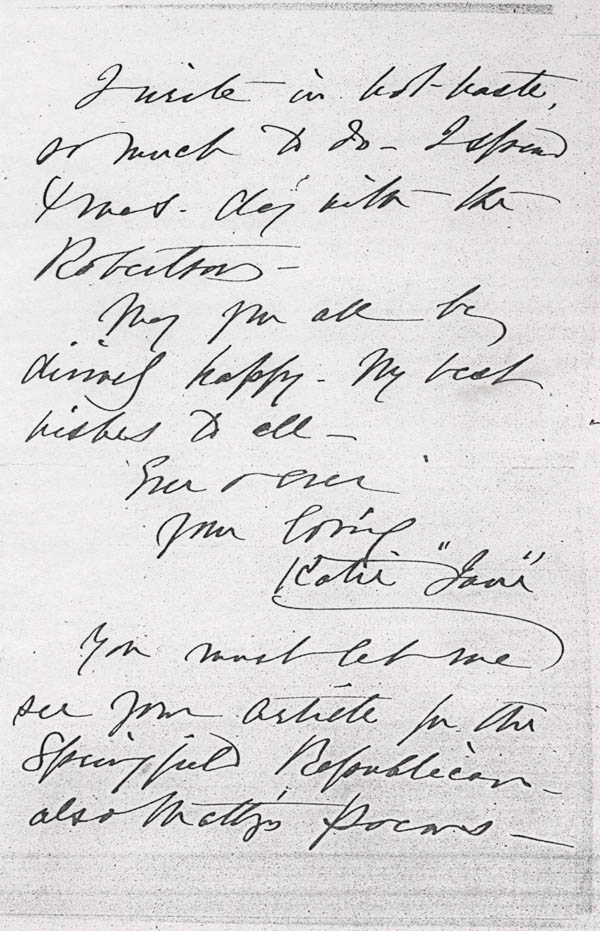 I write in hot-haste,
so much to do - I spend
Xmas. day with the
Robertsons -
May you all be
divinely happy - My best
wishes to all -
Ever & ever
your loving
Katie "Jane"
You must let me
see your article for the
Springfield Republican -
also Matty's Poems -